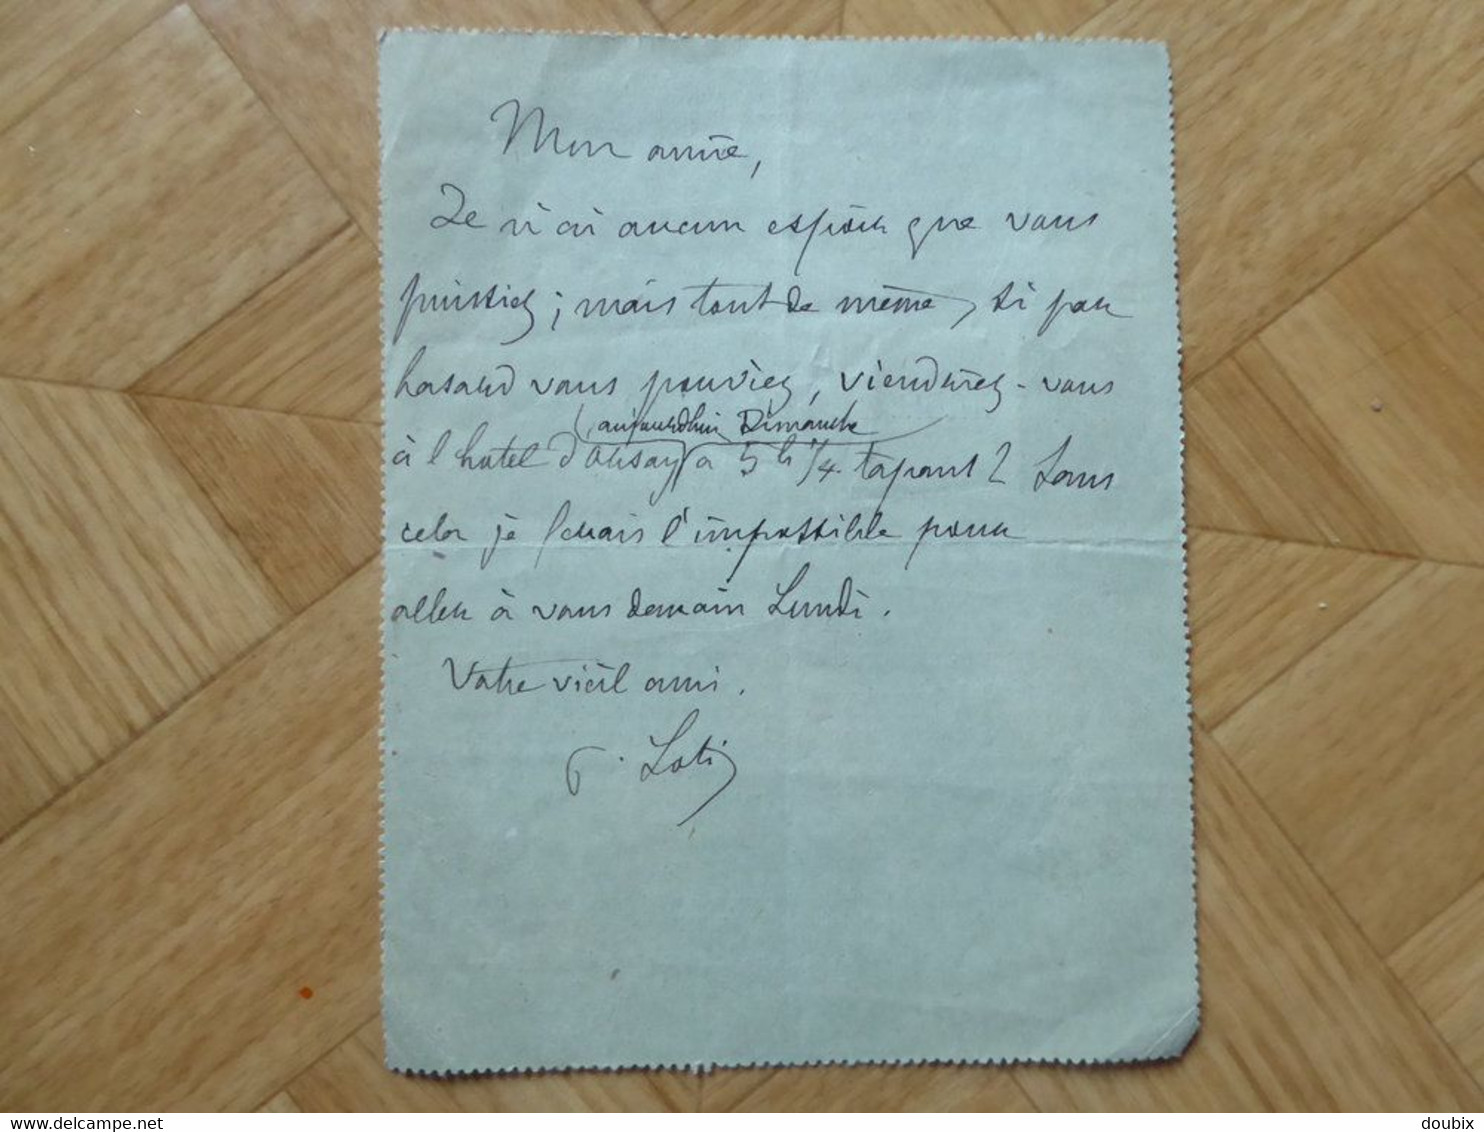 Mon amie,
Je n'ai aucun espoir que vous
puissiez ; mais tout de même, si par
hasard vous pouviez, viendriez-vous
aujourd'hui Dimanche
à l'hotel d'Orsay à 5 h 1/4 tapant ? Sans
cela je ferais l'impossible pour
aller à vous demain Lundi.
Votre vieil ami.
P. Loti
delcampe.net
doubix